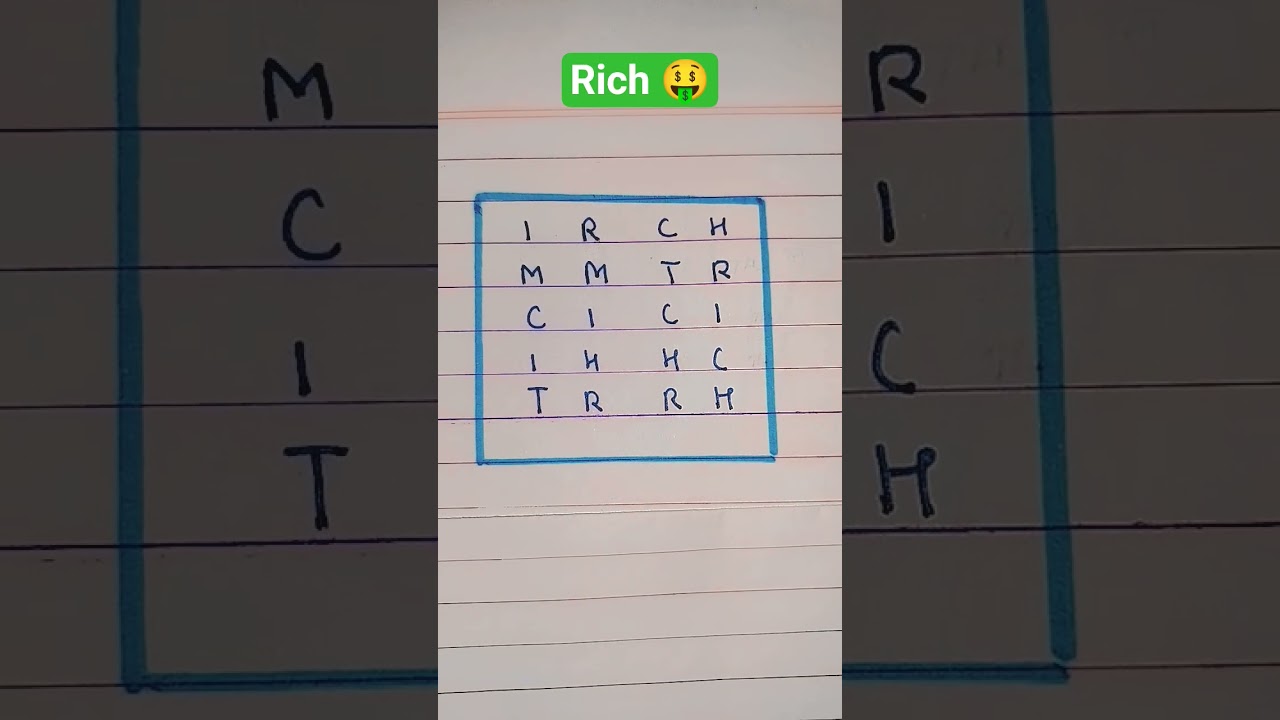 Rich 🤑
I R C H
M M T R
C I C I
I H H C
T R R H
M R
C I
I C
T H